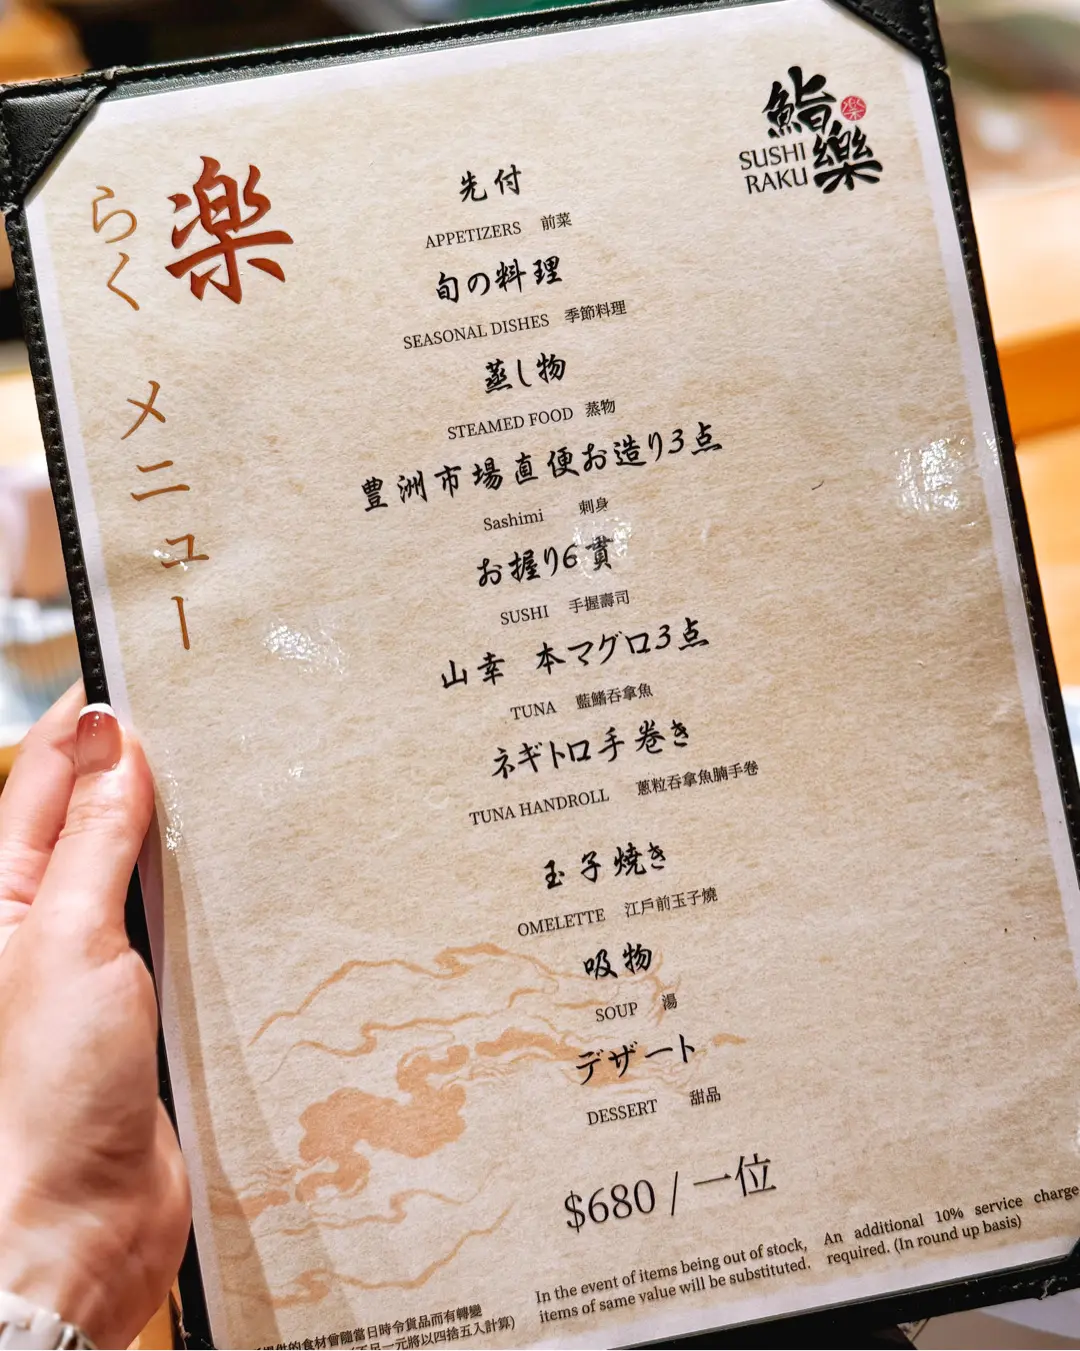 鮨樂
楽
SUSHI
RAKU
楽
らく
メニュー
先付
APPETIZERS 前菜
旬の料理
SEASONAL DISHES 季節料理
蒸し物
STEAMED FOOD 蒸物
豊洲市場直便お造り3点
Sashimi 刺身
お握り6貫
SUSHI 手握壽司
山幸 本マグロ3点
TUNA 藍鰭吞拿魚
ネギトロ手巻き
TUNA HANDROLL 蔥粒吞拿魚腩手卷
玉子焼き
OMELETTE 江戶前玉子燒
吸物
SOUP 湯
デザート
DESSERT 甜品
$680 / 一位
In the event of items being out of stock,
items of same value will be substituted.
An additional 10% service charge
required. (In round up basis)
供的食材會隨當日時令貨品而有轉變
不足一元將以四捨五入計算)